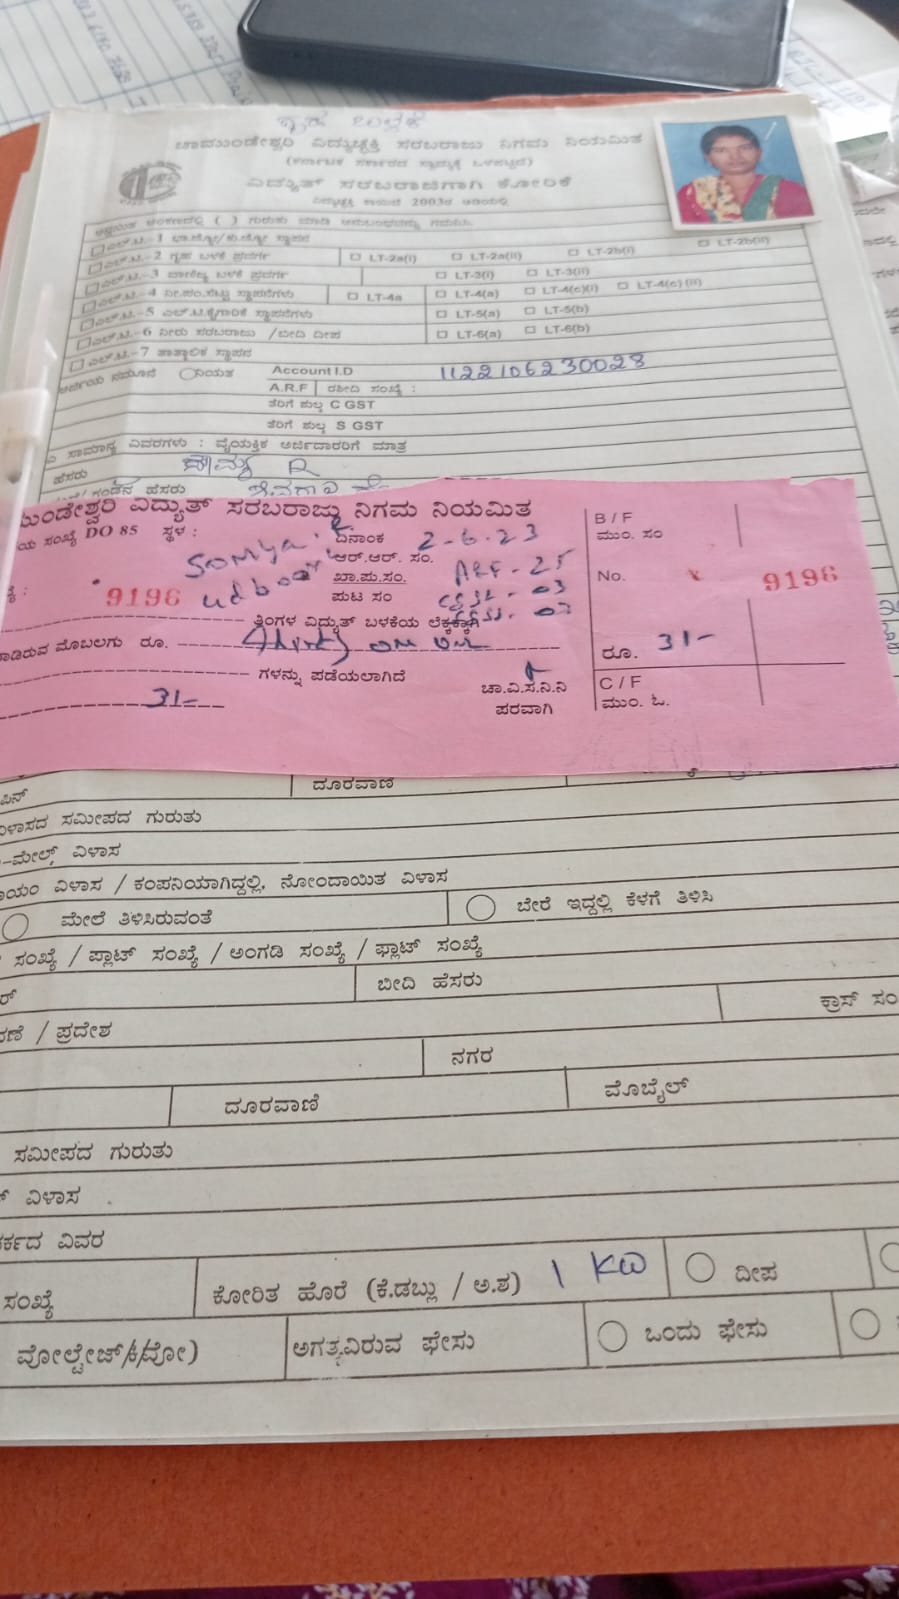 ಗೃಹ ಬಳಕೆ
ಚಾಮುಂಡೇಶ್ವರಿ ವಿದ್ಯುಚ್ಛಕ್ತಿ ಸರಬರಾಜು ನಿಗಮ ನಿಯಮಿತ
(ಕರ್ನಾಟಕ ಸರ್ಕಾರದ ಸ್ವಾಮ್ಯಕ್ಕೆ ಒಳಪಟ್ಟಿದೆ)
ವಿದ್ಯುತ್ ಸರಬರಾಜಿಗಾಗಿ ಕೋರಿಕೆ
ವಿದ್ಯುಚ್ಛಕ್ತಿ ಕಾಯಿದೆ 2003ರ ಅಡಿಯಲ್ಲಿ
( ) ಗುರುತು ಮಾಡಿ
ಎಲ್.ಟಿ.-1 ಸ್ಥಾವರ
ಎಲ್.ಟಿ.-2 ಗೃಹ ಬಳಕೆ ಪ್ರವರ್ಗ LT-2a(i) LT-2a(ii) LT-2b(i) LT-2b(ii)
ಎಲ್.ಟಿ.-3 ವಾಣಿಜ್ಯ ಬಳಕೆ ಪ್ರವರ್ಗ LT-3(i) LT-3(ii)
ಎಲ್.ಟಿ.-4 ನೀ.ಪಂ.ಸೆಟ್ಟು ಸ್ಥಾವರಗಳು LT-4a LT-4(a) LT-4(c)(i) LT-4(c)(ii)
ಎಲ್.ಟಿ.-5 ಎಲ್.ಟಿ.ಕೈಗಾರಿಕೆ ಸ್ಥಾವರಗಳು LT-5(a) LT-5(b)
ಎಲ್.ಟಿ.-6 ನೀರು ಸರಬರಾಜು /ಬೀದಿ ದೀಪ LT-6(a) LT-6(b)
ಎಲ್.ಟಿ.-7 ತಾತ್ಕಾಲಿಕ ಸ್ಥಾವರ
ಅರ್ಜಿಯ ನಮೂನೆ ನಿಯತ Account I.D 1122106230028
A.R.F ರಶೀದಿ ಸಂಖ್ಯೆ :
ತೆರಿಗೆ ಶುಲ್ಕ C GST
ತೆರಿಗೆ ಶುಲ್ಕ S GST
ಸಾಮಾನ್ಯ ವಿವರಗಳು : ವೈಯಕ್ತಿಕ ಅರ್ಜಿದಾರರಿಗೆ ಮಾತ್ರ
ಹೆಸರು ಸೌಮ್ಯ R
ಗಂಡನ ಹೆಸರು
ಮುಂಡೇಶ್ವರಿ ವಿದ್ಯುತ್ ಸರಬರಾಜು ನಿಗಮ ನಿಯಮಿತ
ಯ ಸಂಖ್ಯೆ DO 85 ಸ್ಥಳ : ದಿನಾಂಕ 2-6-23
Somya. ಆರ್.ಆರ್. ಸಂ. ARF-25
9196 udboor ಖಾ.ಪು.ಸಂ. CGST-03
ಪುಟ ಸಂ SGST-03
ತಿಂಗಳ ವಿದ್ಯುತ್ ಬಳಕೆಯ ಲೆಕ್ಕಕ್ಕಾಗಿ
ಮಾಡಿರುವ ಮೊಬಲಗು ರೂ. thirty one only
ಗಳನ್ನು ಪಡೆಯಲಾಗಿದೆ
31- ಚಾ.ವಿ.ಸ.ನಿ.ನಿ
ಪರವಾಗಿ
B / F
ಮುಂ. ಸಂ
No. 9196
ರೂ. 31-
C / F
ಮುಂ. ಓ.
ಪಿನ್ ದೂರವಾಣಿ
ವಿಳಾಸದ ಸಮೀಪದ ಗುರುತು
-ಮೇಲ್ ವಿಳಾಸ
ಾಯಂ ವಿಳಾಸ / ಕಂಪನಿಯಾಗಿದ್ದಲ್ಲಿ, ನೋಂದಾಯಿತ ವಿಳಾಸ
ಮೇಲೆ ತಿಳಿಸಿರುವಂತೆ ಬೇರೆ ಇದ್ದಲ್ಲಿ ಕೆಳಗೆ ತಿಳಿಸಿ
ಸಂಖ್ಯೆ / ಪ್ಲಾಟ್ ಸಂಖ್ಯೆ / ಅಂಗಡಿ ಸಂಖ್ಯೆ / ಫ್ಲಾಟ್ ಸಂಖ್ಯೆ
ಬೀದಿ ಹೆಸರು
ವಣೆ / ಪ್ರದೇಶ ಕ್ರಾಸ್ ಸಂ
ನಗರ
ದೂರವಾಣಿ ಮೊಬೈಲ್
ಸಮೀಪದ ಗುರುತು
ವಿಳಾಸ
ರ್ಕದ ವಿವರ
ಸಂಖ್ಯೆ ಕೋರಿತ ಹೊರೆ (ಕೆ.ಡಬ್ಲು / ಅ.ಶ) 1 KW ದೀಪ
ವೋಲ್ಟೇಜ್ ಅಗತ್ಯವಿರುವ ಫೇಸು ಒಂದು ಫೇಸು